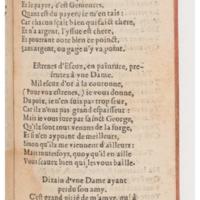 Et le payer, c'est Geniences,
Quant est du payer, ie m'en tais:
Car chacun sçait bien qui faict chere,
Et n'a argent, l'yssue est chere,
Et pourtant notez bien ce poinct,
Sans argent, ou gage n'y va point.
Estrenes d'Escuz, en painture, pre-
sentez à vne Dame.
Mil escuz d'or à la couronne,
(Pour voz estrenes,) ie vous donne,
Depuis, ie n'en suis pas trop seur
Car il n'a pas grand espaisseur:
Mais ie vous iure par sainct George,
Qu'ilz sont tous venans de la forge,
Et s'il n'en ay point de meilleurs,
Sinon qu'ilz me viennent d'ailleurs:
Mais toutesfoys, quoy qu'il en aille
Vous sçaurez bien qui les vous baille.
Dizain d'vne Dame ayant
perdu son amy.
C'est grand pitié de m'amye, qui a